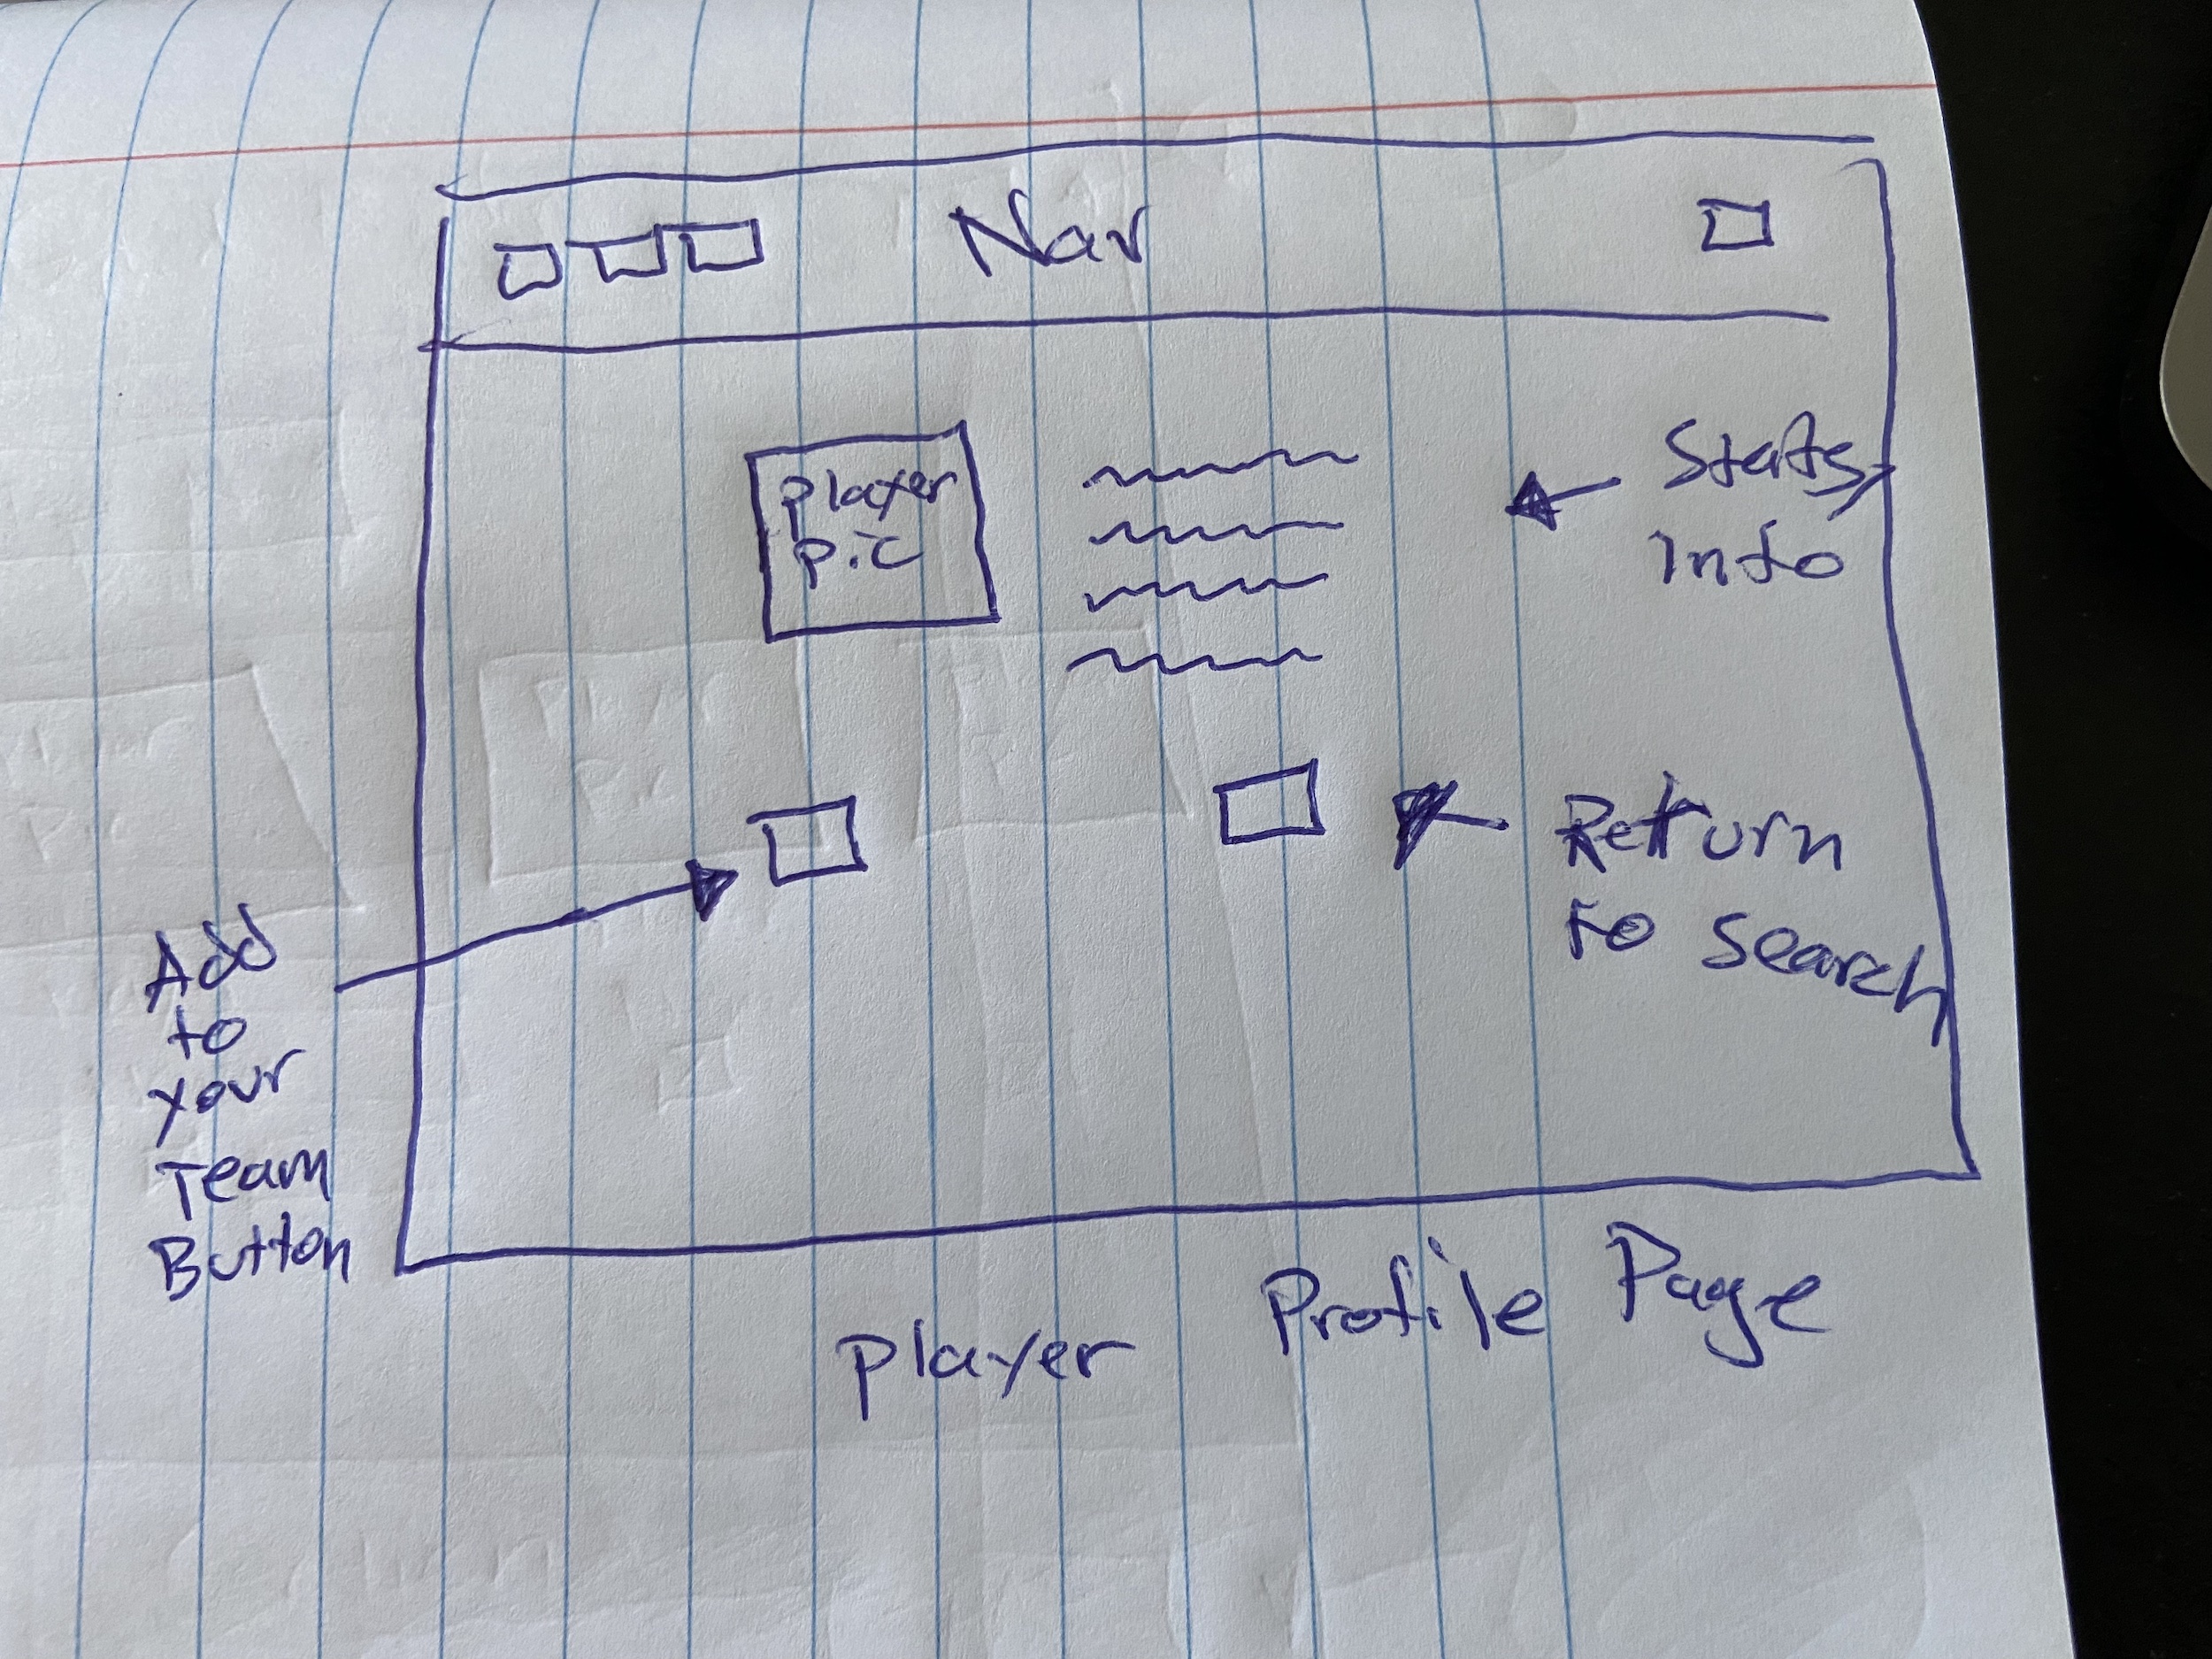 Nav
Player
Pic
Stats,
Info
Return
to search
Add
to
your
Team
Button
Player Profile Page